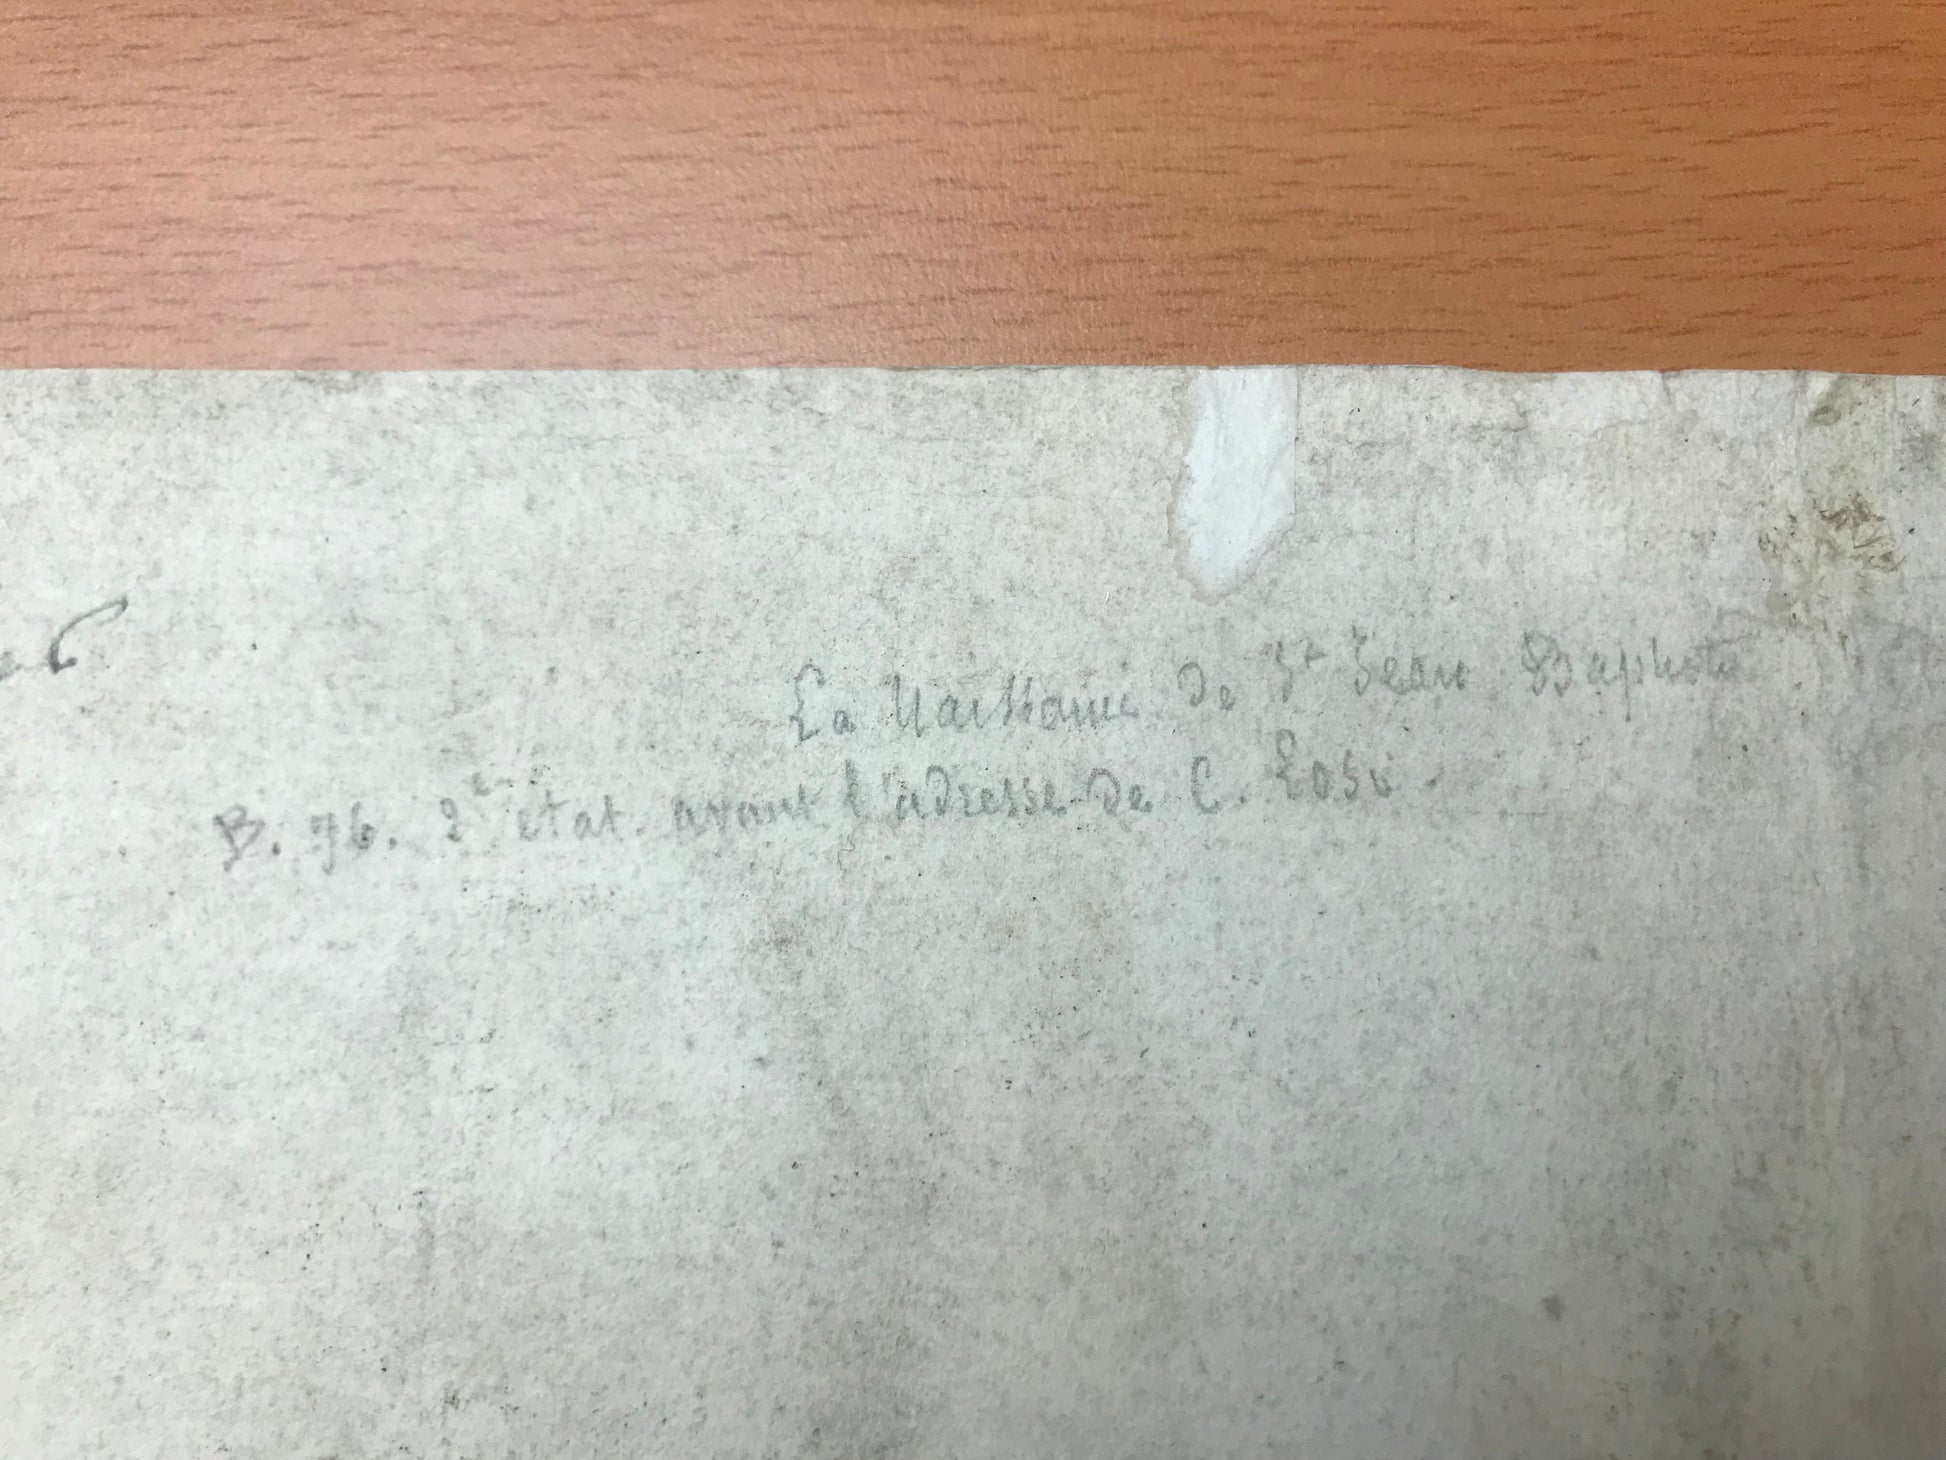 La Naissance de St Jean Baptiste
B. 76. 2e etat. avant l'adresse de C. Losi.